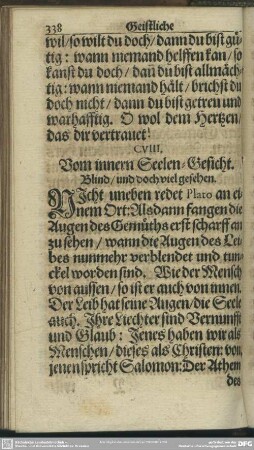 338 Geistliche
wil / so wilt du doch / dann du bist gü-
tig: wann niemand helffen kan / so
kanst du doch / dañ du bist allmäch-
tig: wann niemand hält / brichst du
doch nicht / dann du bist getreu und
warhafftig. O wol dem Hertzen /
das dir vertrauet!
CVIII.
Vom innern Seelen-Gesicht.
Blind / und doch viel gesehen.
NIcht uneben redet Plato an ei-
nem Ort: Alsdann fangen die
Augen des Gemüths erst scharff an
zu sehen / wann die Augen des Lei-
bes nunmehr verblendet und tun-
ckel worden sind. Wie der Mensch
von aussen / so ist er auch von innen.
Der Leib hat seine Augen / die Seele
auch. Ihre Liechter sind Vernunfft
und Glaub: Jenes haben wir als
Menschen / dieses als Christen: von
jenen spricht Salomon: Der Athem
des